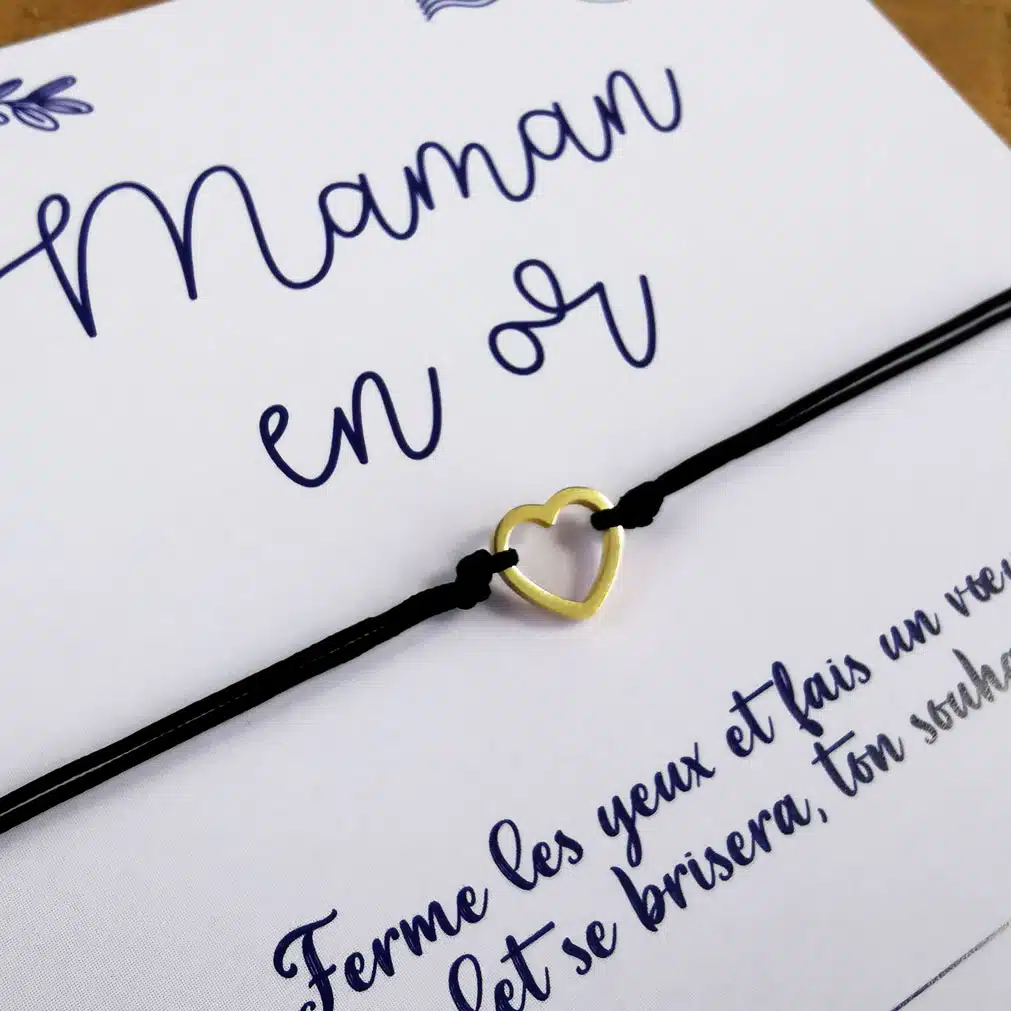 Maman
en or
Ferme les yeux et fais un vœu
let se brisera, ton souha